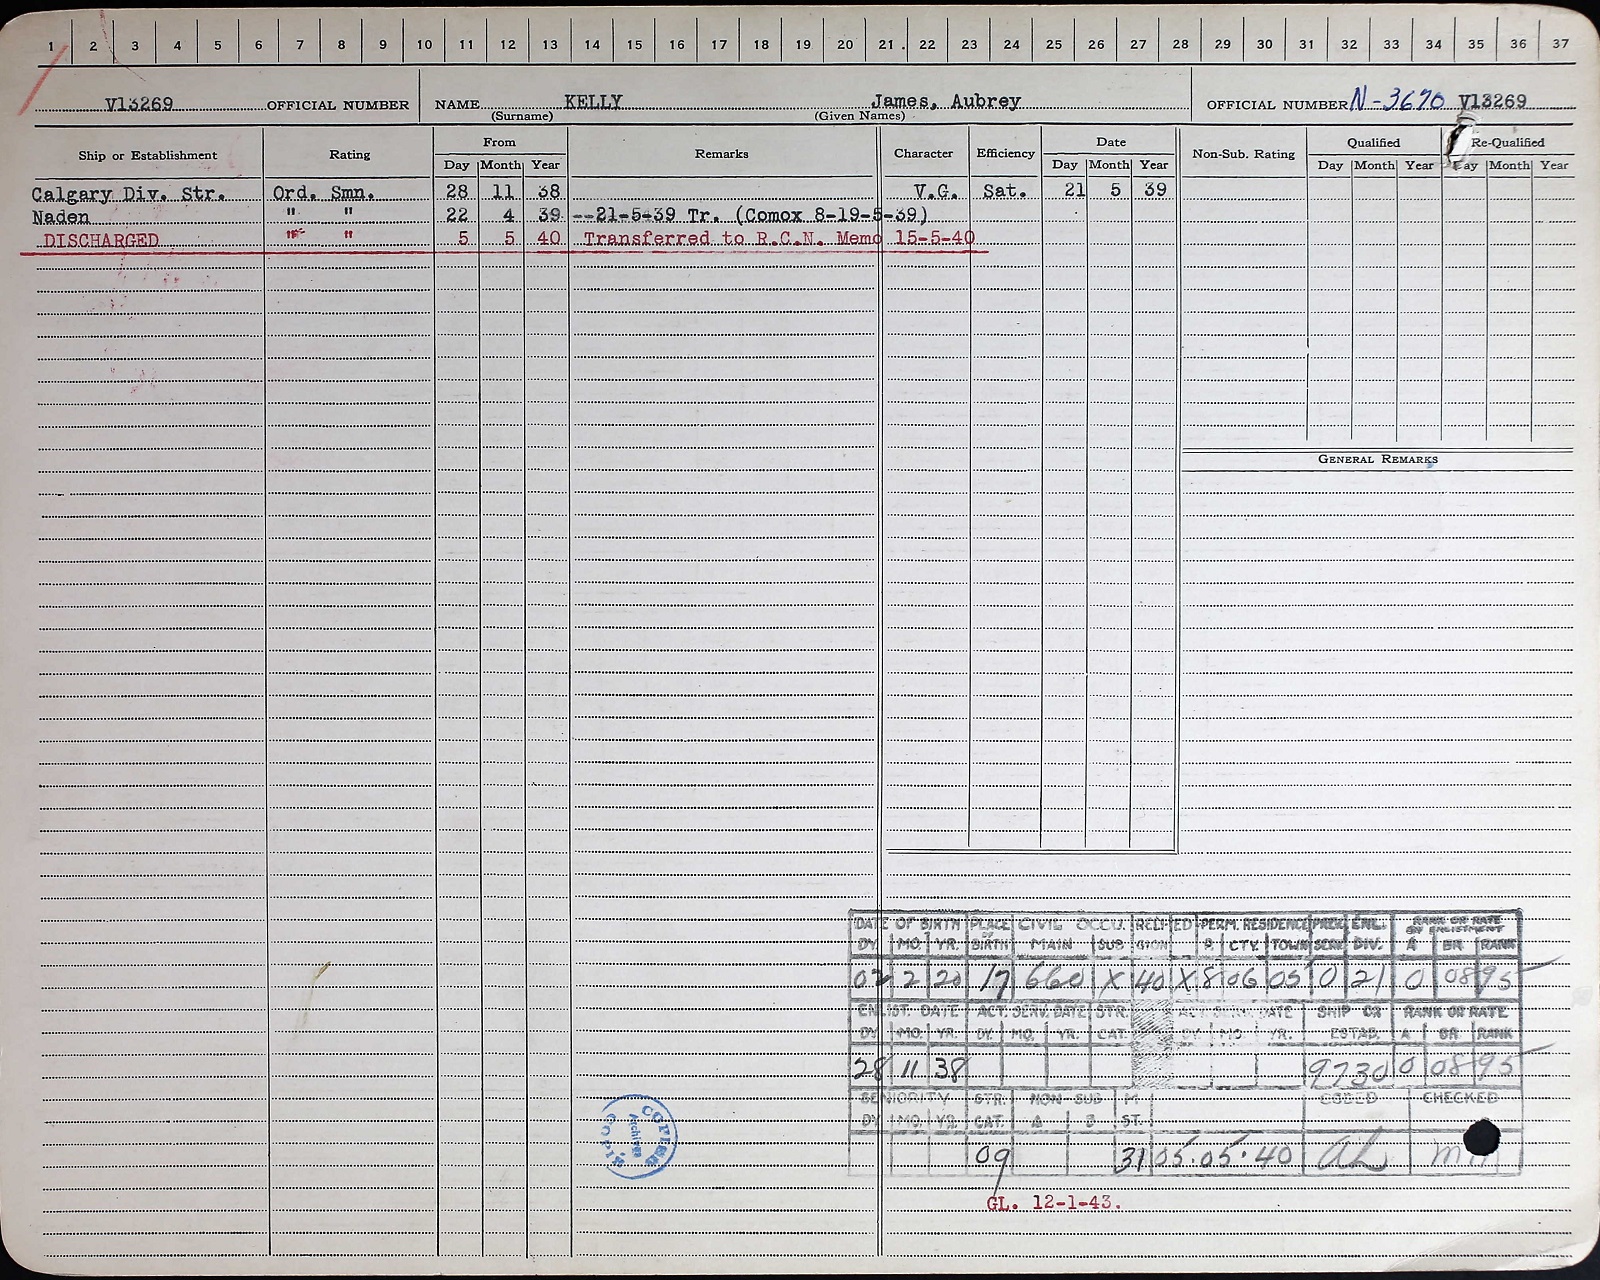 1 2 3 4 5 6 7 8 9 10 11 12 13 14 15 16 17 18 19 20 21 . 22 23 24 25 26 27 28 29 30 31 32 33 34 35 36 37
V13269 OFFICIAL NUMBER NAME KELLY James, Aubrey OFFICIAL NUMBER N-3670 V13269
(Surname) (Given Names)
Ship or Establishment Rating From Remarks Character Efficiency Date Non-Sub. Rating Qualified Re-Qualified
Day Month Year Day Month Year Day Month Year Day Month Year
Calgary Div. Str. Ord. Smn. 28 11 38 V.G. Sat. 21 5 39
Naden " " 22 4 39 --21-5-39 Tr. (Comox 8-19-5-39)
DISCHARGED " " 5 5 40 Transferred to R.C.N. Memo 15-5-40
GENERAL REMARKS
DATE OF BIRTH PLACE OF BIRTH CIVIL OCCU. RELIGION ED PERM. RESIDENCE PREV. SERV. ENL. DIV. RANK OR RATE ON ENLISTMENT
DY. MO. YR. MAIN SUB P. CTY. TOWN A BR RANK
02 2 20 17 660 X 40 X 8 06 05 0 21 0 08 95
ENLIST. DATE ACT. SERV. DATE STR. CAT. DATE SHIP OR ESTAB. RANK OR RATE
DY. MO. YR. DY. MO. YR. DY. MO. YR. A BR RANK
28 11 38 9730 0 08 95
SENIORITY STR. CAT. NON SUB M. ST. CODED CHECKED
DY. MO. YR. A B
09 31 05.05.40 
COPIED
Archives
COPIÉ
GL. 12-1-43.